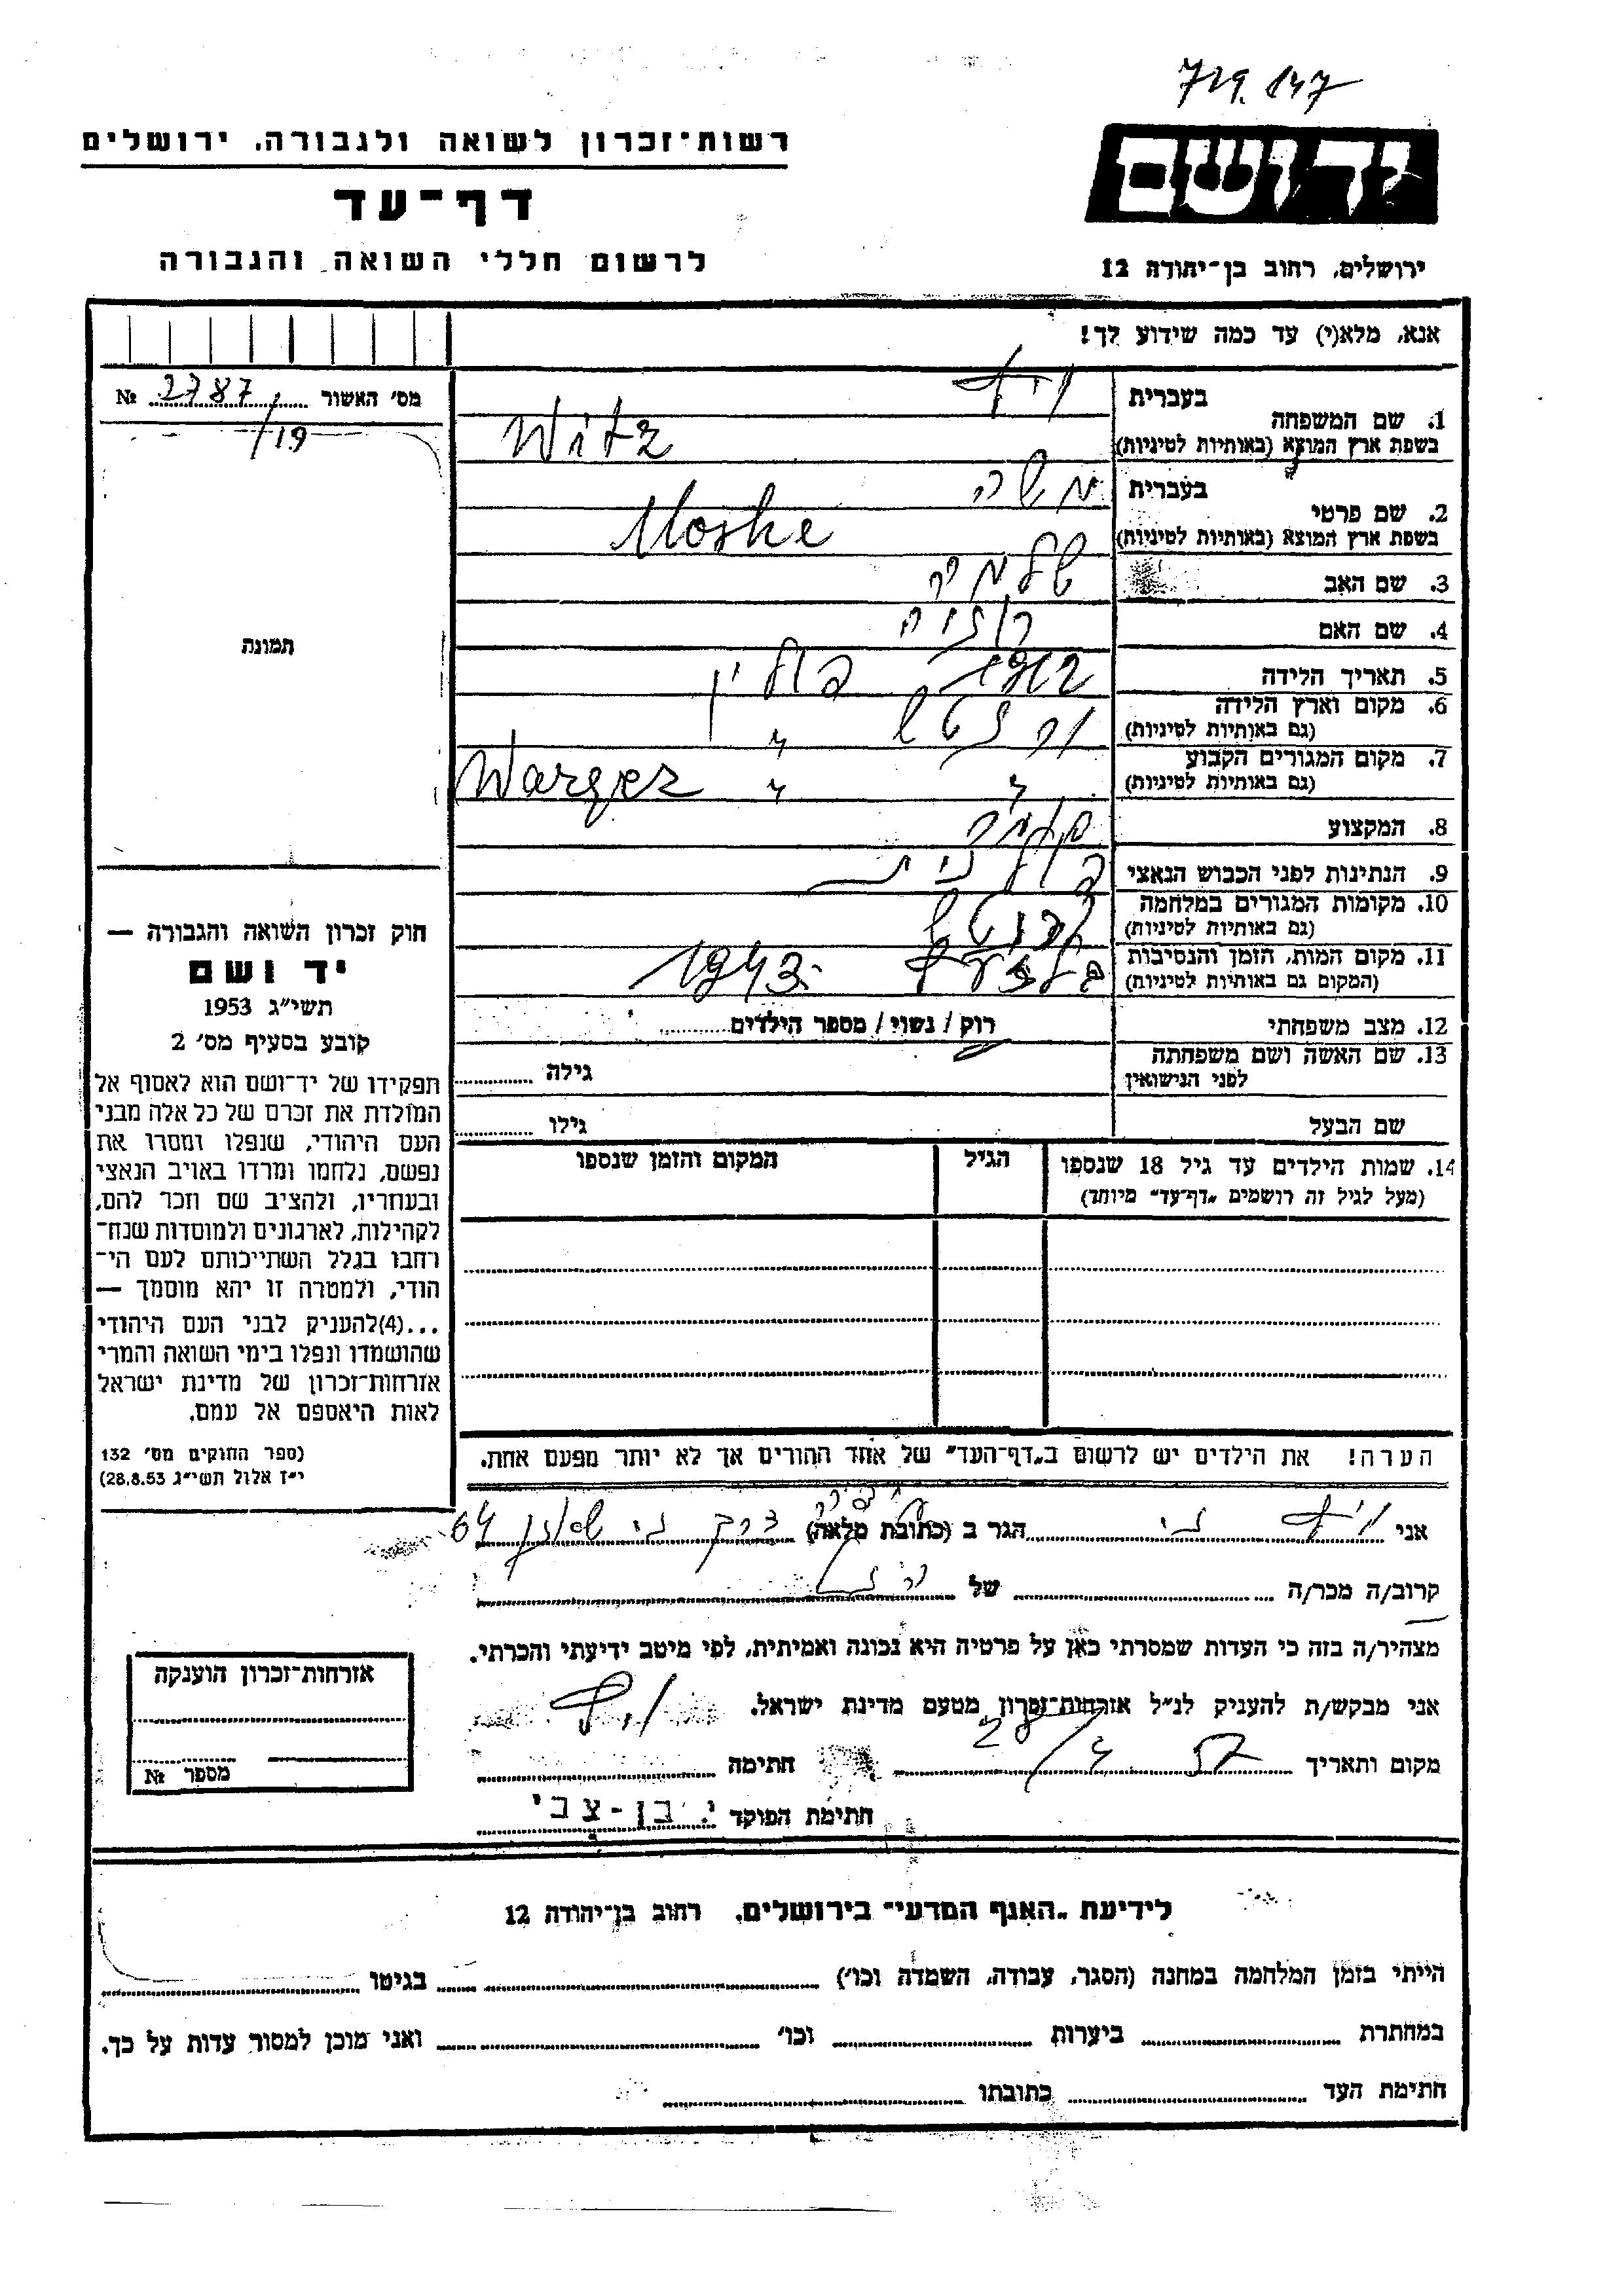 719.147
רשות־זכרון לשואה ולגבורה, ירושלים
דף־עד
לרשום חללי השואה והגבורה
יד ושם
ירושלים, רחוב בן־יהודה 12
אנא, מלא(י) עד כמה שידוע לך!
מס׳ האשור 2787 №
/19
תמונה
1. שם המשפחה בעברית ויץ
בשפת ארץ המוצא (באותיות לטיניות) Witz
2. שם פרטי בעברית משה
בשפת ארץ המוצא (באותיות לטיניות) Moshe
3. שם האב
4. שם האם
5. תאריך הלידה
6. מקום וארץ הלידה פולין
(גם באותיות לטיניות)
7. מקום המגורים הקבוע
(גם באותיות לטיניות) Warzez
8. המקצוע
9. הנתינות לפני הכבוש הנאצי פולנית
10. מקומות המגורים במלחמה
(גם באותיות לטיניות)
11. מקום המות, הזמן והנסיבות בלזעץ 1943
(המקום גם באותיות לטיניות)
12. מצב משפחתי רוק / נשוי / מספר הילדים
13. שם האשה ושם משפחתה
לפני הנישואין גילה
שם הבעל גילו
14. שמות הילדים עד גיל 18 שנספו הגיל המקום והזמן שנספו
(מעל לגיל זה רושמים „דף־עד״ מיוחד)
הערה! את הילדים יש לרשום ב„דף־העד״ של אחד ההורים אך לא יותר מפעם אחת.
חוק זכרון השואה והגבורה —
יד ושם
תשי״ג 1953
קובע בסעיף מס׳ 2
תפקידו של יד־ושם הוא לאסוף אל
המולדת את זכרם של כל אלה מבני
העם היהודי, שנפלו ומסרו את
נפשם, נלחמו ומרדו באויב הנאצי
ובעוזריו, ולהציב שם וזכר להם,
לקהילות, לארגונים ולמוסדות שנח־
רחבו בגלל השתייכותם לעם הי־
הודי, ולמטרה זו יהא מוסמך —
...(4)להעניק לבני העם היהודי
שהושמדו ונפלו בימי השואה והמרי
אזרחות־זכרון של מדינת ישראל
לאות היאספם אל עמם.
(ספר החוקים מס׳ 132
י״ז אלול תשי״ג 28.8.53)
אני ויץ הגר ב (כתובת מלאה) דרך 64
קרוב/ה מכר/ה של
מצהיר/ה בזה כי העדות שמסרתי כאן על פרטיה היא נכונה ואמיתית, לפי מיטב ידיעתי והכרתי.
אני מבקש/ת להעניק לנ״ל אזרחות־זכרון מטעם מדינת ישראל.
מקום ותאריך 28/4 57 חתימה ויץ
חתימת הפוקד י. בן-צבי
אזרחות־זכרון הוענקה
מספר №
לידיעת „האגף המדעי״ בירושלים, רחוב בן־יהודה 12
הייתי בזמן המלחמה במחנה (הסגר, עבודה, השמדה וכו׳) בגיטו
במחתרת ביערות וכו׳ ואני מוכן למסור עדות על כך.
חתימת העד כתובתו